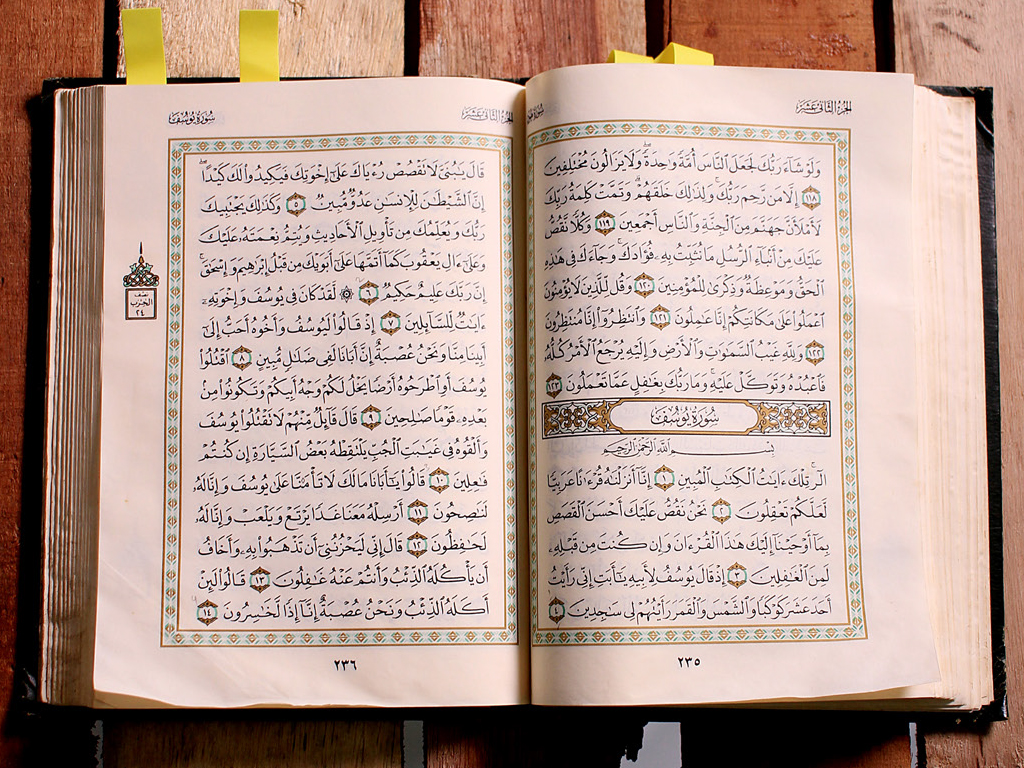 الجزء الثاني عشر
وَلَوْ شَآءَ رَبُّكَ لَجَعَلَ ٱلنَّاسَ أُمَّةً وَٰحِدَةً ۖ وَلَا يَزَالُونَ مُخْتَلِفِينَ
١١٨ إِلَّا مَن رَّحِمَ رَبُّكَ ۚ وَلِذَٰلِكَ خَلَقَهُمْ ۗ وَتَمَّتْ كَلِمَةُ رَبِّكَ
لَأَمْلَأَنَّ جَهَنَّمَ مِنَ ٱلْجِنَّةِ وَٱلنَّاسِ أَجْمَعِينَ ١١٩ وَكُلًّا نَّقُصُّ
عَلَيْكَ مِنْ أَنۢبَآءِ ٱلرُّسُلِ مَا نُثَبِّتُ بِهِۦ فُؤَادَكَ ۚ وَجَآءَكَ فِى هَٰذِهِ
ٱلْحَقُّ وَمَوْعِظَةٌ وَذِكْرَىٰ لِلْمُؤْمِنِينَ ١٢٠ وَقُل لِّلَّذِينَ لَا يُؤْمِنُونَ
ٱعْمَلُوا۟ عَلَىٰ مَكَانَتِكُمْ إِنَّا عَٰمِلُونَ ١٢١ وَٱنتَظِرُوٓا۟ إِنَّا مُنتَظِرُونَ
١٢٢ وَلِلَّهِ غَيْبُ ٱلسَّمَٰوَٰتِ وَٱلْأَرْضِ وَإِلَيْهِ يُرْجَعُ ٱلْأَمْرُ كُلُّهُۥ
فَٱعْبُدْهُ وَتَوَكَّلْ عَلَيْهِ ۚ وَمَا رَبُّكَ بِغَٰفِلٍ عَمَّا تَعْمَلُونَ ١٢٣
سُورَةُ يُوسُفَ
بِسْمِ ٱللَّهِ ٱلرَّحْمَٰنِ ٱلرَّحِيمِ
الٓر ۚ تِلْكَ ءَايَٰتُ ٱلْكِتَٰبِ ٱلْمُبِينِ ١ إِنَّآ أَنزَلْنَٰهُ قُرْءَٰنًا عَرَبِيًّا
لَّعَلَّكُمْ تَعْقِلُونَ ٢ نَحْنُ نَقُصُّ عَلَيْكَ أَحْسَنَ ٱلْقَصَصِ
بِمَآ أَوْحَيْنَآ إِلَيْكَ هَٰذَا ٱلْقُرْءَانَ وَإِن كُنتَ مِن قَبْلِهِۦ
لَمِنَ ٱلْغَٰفِلِينَ ٣ إِذْ قَالَ يُوسُفُ لِأَبِيهِ يَٰٓأَبَتِ إِنِّى رَأَيْتُ
أَحَدَ عَشَرَ كَوْكَبًا وَٱلشَّمْسَ وَٱلْقَمَرَ رَأَيْتُهُمْ لِى سَٰجِدِينَ ٤
٢٣٥
الجزء الثاني عشر
سورة يوسف
قَالَ يَٰبُنَىَّ لَا تَقْصُصْ رُءْيَاكَ عَلَىٰٓ إِخْوَتِكَ فَيَكِيدُوا۟ لَكَ كَيْدًا ۖ
إِنَّ ٱلشَّيْطَٰنَ لِلْإِنسَٰنِ عَدُوٌّ مُّبِينٌ ٥ وَكَذَٰلِكَ يَجْتَبِيكَ
رَبُّكَ وَيُعَلِّمُكَ مِن تَأْوِيلِ ٱلْأَحَادِيثِ وَيُتِمُّ نِعْمَتَهُۥ عَلَيْكَ
وَعَلَىٰٓ ءَالِ يَعْقُوبَ كَمَآ أَتَمَّهَا عَلَىٰٓ أَبَوَيْكَ مِن قَبْلُ إِبْرَٰهِيمَ وَإِسْحَٰقَ ۚ
إِنَّ رَبَّكَ عَلِيمٌ حَكِيمٌ ٦ ۞ لَّقَدْ كَانَ فِى يُوسُفَ وَإِخْوَتِهِۦٓ
ءَايَٰتٌ لِّلسَّآئِلِينَ ٧ إِذْ قَالُوا۟ لَيُوسُفُ وَأَخُوهُ أَحَبُّ إِلَىٰٓ
أَبِينَا مِنَّا وَنَحْنُ عُصْبَةٌ إِنَّ أَبَانَا لَفِى ضَلَٰلٍ مُّبِينٍ ٨ ٱقْتُلُوا۟
يُوسُفَ أَوِ ٱطْرَحُوهُ أَرْضًا يَخْلُ لَكُمْ وَجْهُ أَبِيكُمْ وَتَكُونُوا۟ مِنۢ
بَعْدِهِۦ قَوْمًا صَٰلِحِينَ ٩ قَالَ قَآئِلٌ مِّنْهُمْ لَا تَقْتُلُوا۟ يُوسُفَ
وَأَلْقُوهُ فِى غَيَٰبَتِ ٱلْجُبِّ يَلْتَقِطْهُ بَعْضُ ٱلسَّيَّارَةِ إِن كُنتُمْ
فَٰعِلِينَ ١٠ قَالُوا۟ يَٰٓأَبَانَا مَا لَكَ لَا تَأْمَ۫نَّا عَلَىٰ يُوسُفَ وَإِنَّا لَهُۥ
لَنَٰصِحُونَ ١١ أَرْسِلْهُ مَعَنَا غَدًا يَرْتَعْ وَيَلْعَبْ وَإِنَّا لَهُۥ
لَحَٰفِظُونَ ١٢ قَالَ إِنِّى لَيَحْزُنُنِىٓ أَن تَذْهَبُوا۟ بِهِۦ وَأَخَافُ
أَن يَأْكُلَهُ ٱلذِّئْبُ وَأَنتُمْ عَنْهُ غَٰفِلُونَ ١٣ قَالُوا۟ لَئِنْ
أَكَلَهُ ٱلذِّئْبُ وَنَحْنُ عُصْبَةٌ إِنَّآ إِذًا لَّخَٰسِرُونَ ١٤
نصف
الحزب
٢٤
٢٣٦